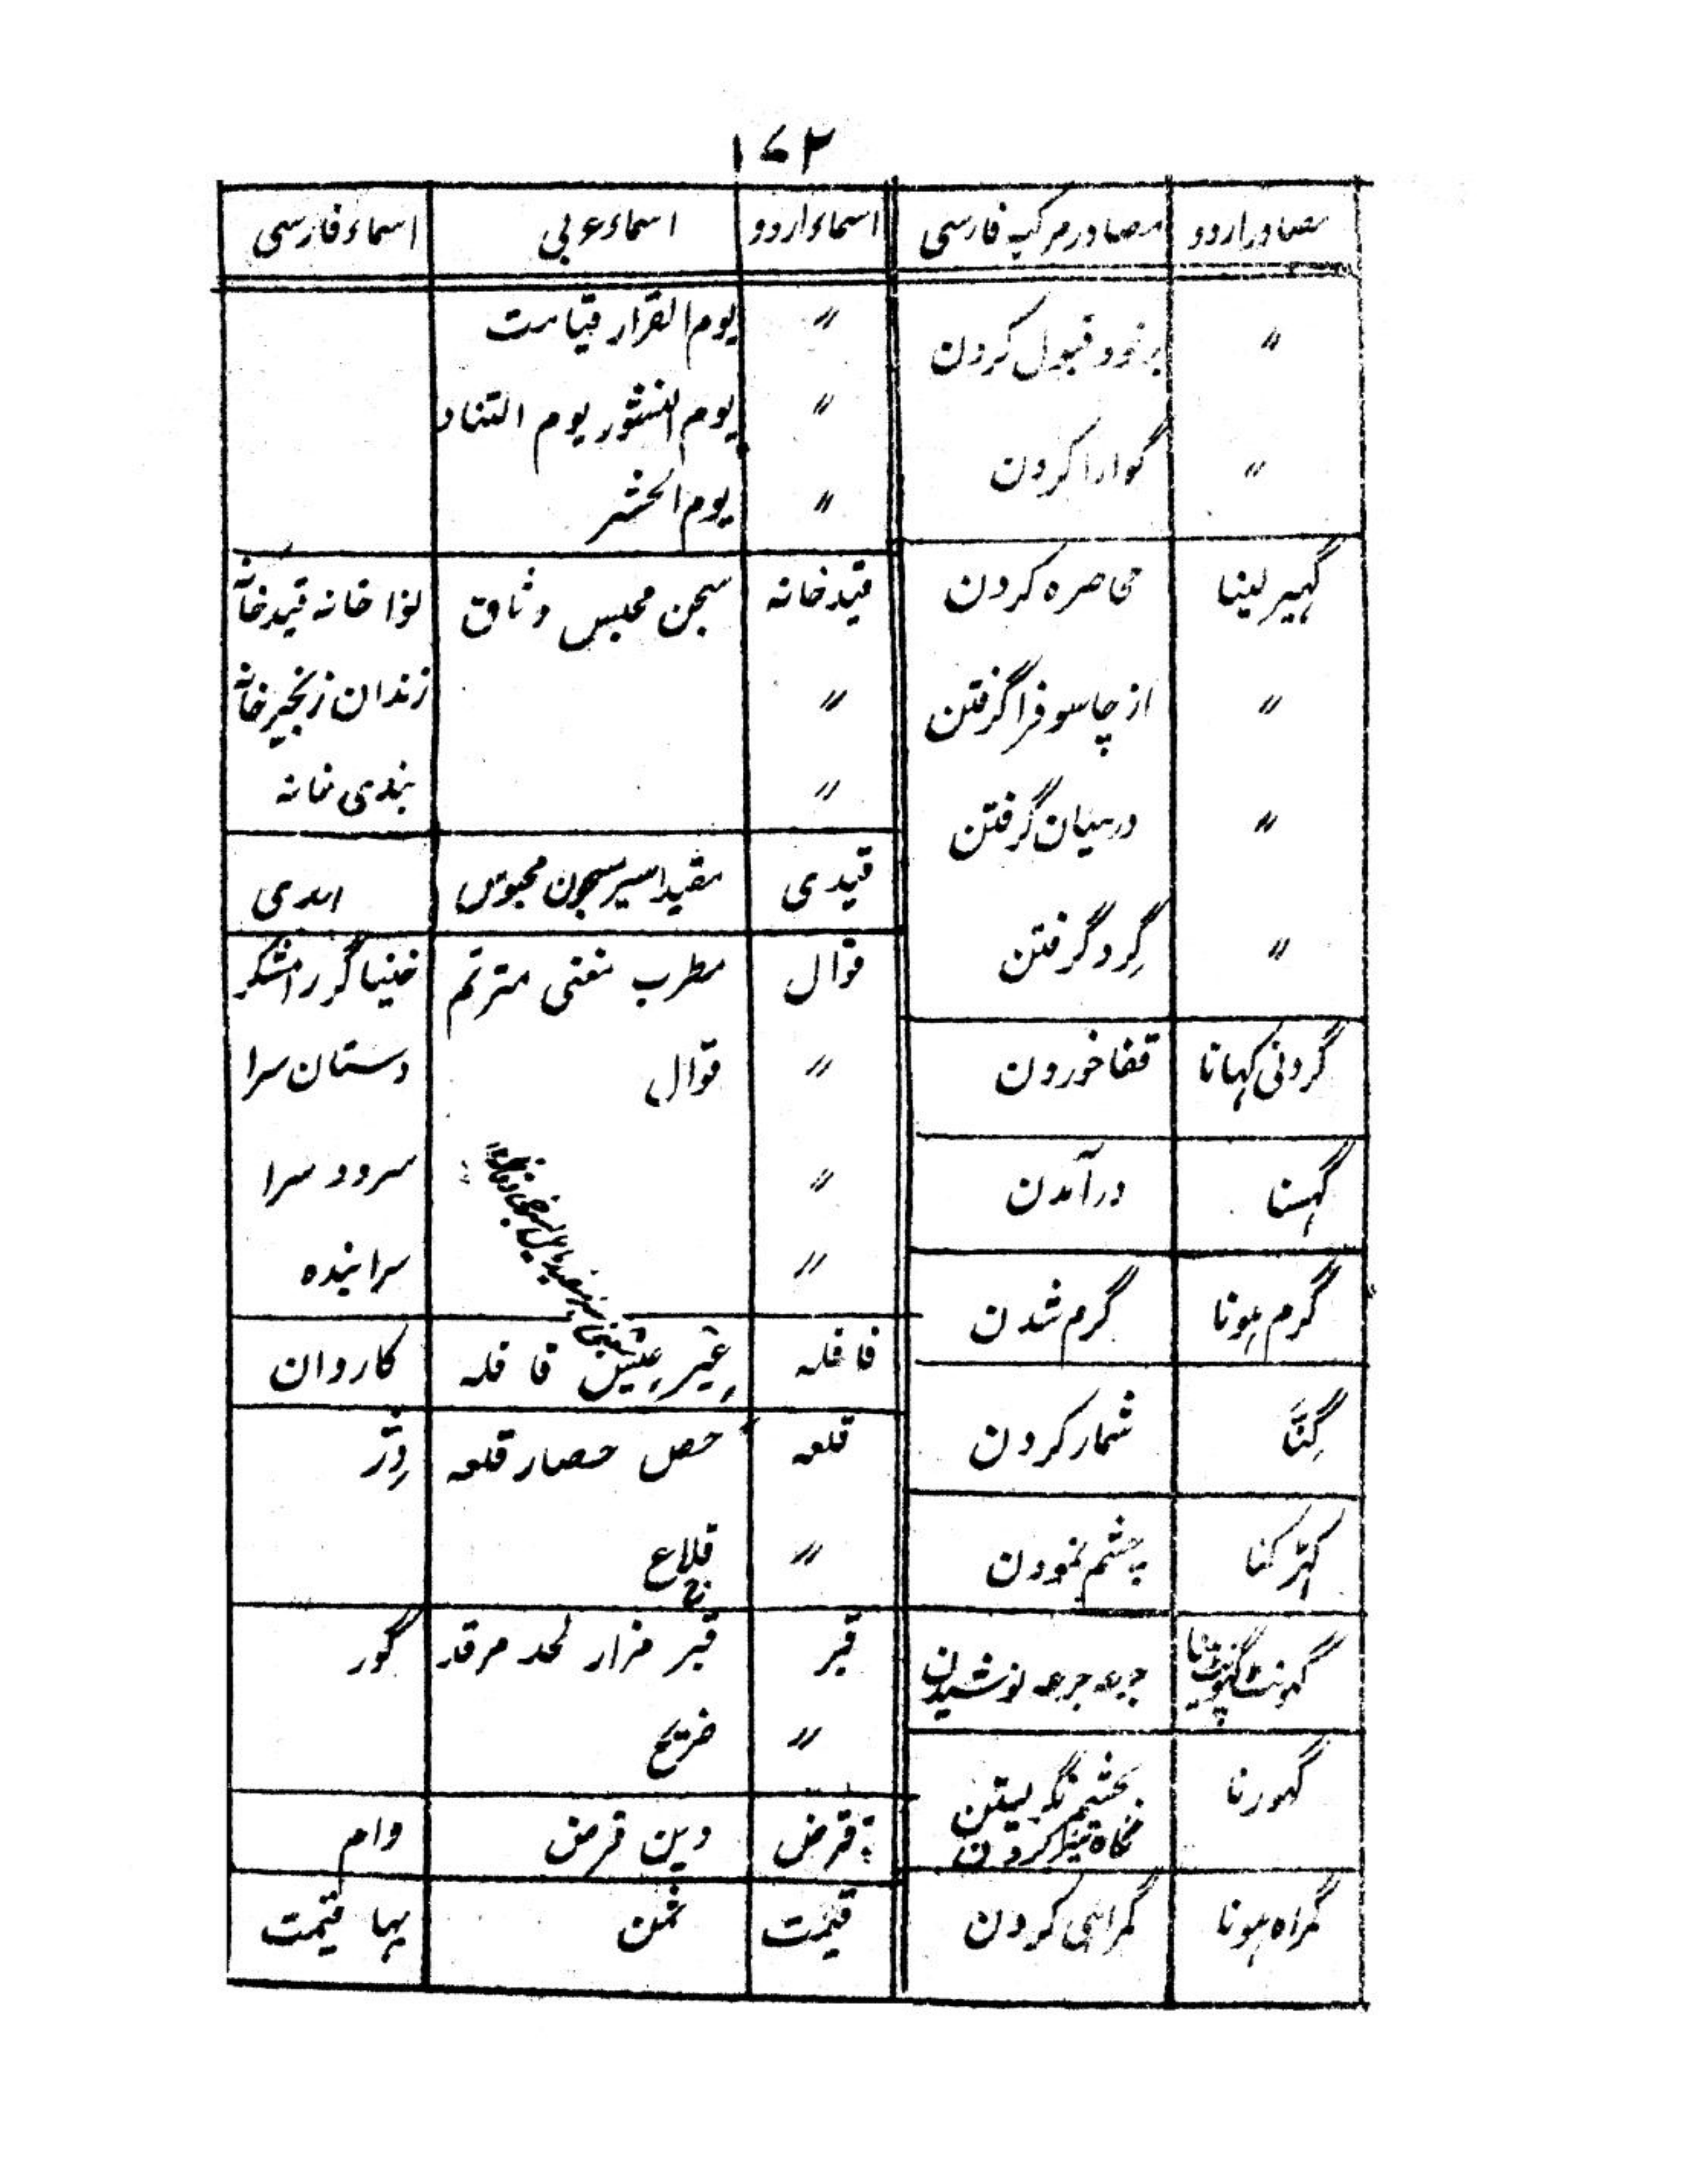 ۱۷۲
مصادر اردو | مصادر مرکب فارسی | اسماء اردو | اسماء عربی | اسماء فارسی
〃 | برخود قبول کردن
〃 | گوارا کردن
گہیر لینا | محاصرہ کردن
〃 | از چاسو فرا گرفتن
〃 | درمیان گرفتن
〃 | گِرد گرفتن
گردنی کہانا | قفا خوردن
گہسنا | درآمدن
گرم ہونا | گرم شدن
گِننا | شمار کردن
گہڑکنا | چشم نمودن
گہونٹ گہونٹ پینا | جرعہ جرعہ نوشیدن
گہورنا | بچشم نگریستن
نگاہ تیز کردن
گمراہ ہونا | گمراہی کردن
〃 | یوم القرار قیامت
〃 | یوم النشور یوم التناد
〃 | یوم الحشر
قیدخانہ | سجن محبس وثاق | نوا خانہ قیدخانہ
〃 | زندان زنجیرخانہ
〃 | بندی خانہ
قیدی | مقید اسیر مسجون محبوس
قوال | مطرب مغنی مترنم | خنیاگر رامشگر
〃 | قوال | دستان سرا
〃 | سرود سرا
〃 | سرایندہ
قافلہ | عیر قافلہ | کاروان
قلعہ | حصن حصار قلعہ | دِژ
〃 | قلاع
ج
قبر | قبر مزار لحد مرقد | گور
〃 | ضریح
قرض | دین قرض | وام
قیمت | ثمن | بہا قیمت